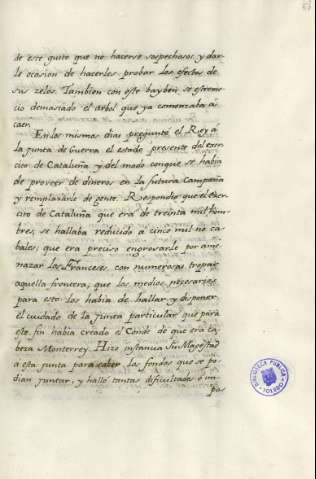 de este quite que no hacerse sospechosos, y dar-
le ocasion de hacerles probar los efectos de
sus zelos. Tambien con este bayben se estreme-
cio demasiado el arbol que ya comenzaba á
caer.
En los mismos dias preguntó el Rey á
la junta de Guerra el estado presente del exer-
cito de Cataluña y del modo conque se habia
de proveer de dineros en la futura Campaña
y remplazarle de gente. Respondio que el Exer-
cito de Cataluña que era de treinta mil hom-
bres, se hallaba reducido á cinco mil no ca-
bales; que era preciso engrosarle por ame-
nazar los Franceses, con numerosas tropas
aquella frontera, que los medios necesarios
para esto los habia de hallar y disponer
el cuidado de la junta particular que para
este fin habia creado el Conde de que era ca-
beza Monterrey. Hizo instancia Su Magestad
a esta junta para saber los fondos que se po-
dian juntar, y halló tantas dificultades é im-
pos
BIBLIOTECA PUBLICA
TOLEDO